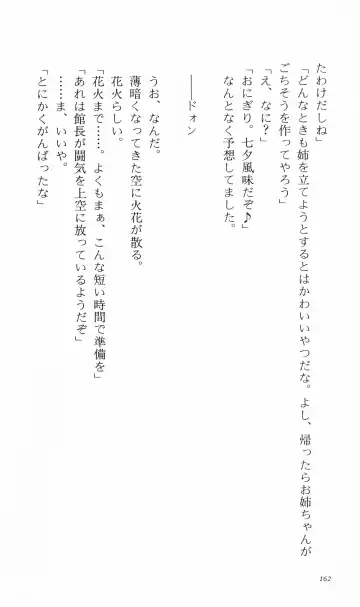 たわけだしね」
「どんなときも姉を立てようとするとはかわいいやつだな。よし、帰ったらお姉ちゃんが
ごちそうを作ってやろう」
「え、なに？」
「おにぎり。七夕風味だぞ♪」
なんとなく予想してました。
――ドォン
うお、なんだ。
薄暗くなってきた空に火花が散る。
花火らしい。
「花火まで……。よくもまぁ、こんな短い時間で準備を」
「あれは館長が闘気を上空に放っているようだぞ」
……ま、いいや。
「とにかくがんばったな」
162